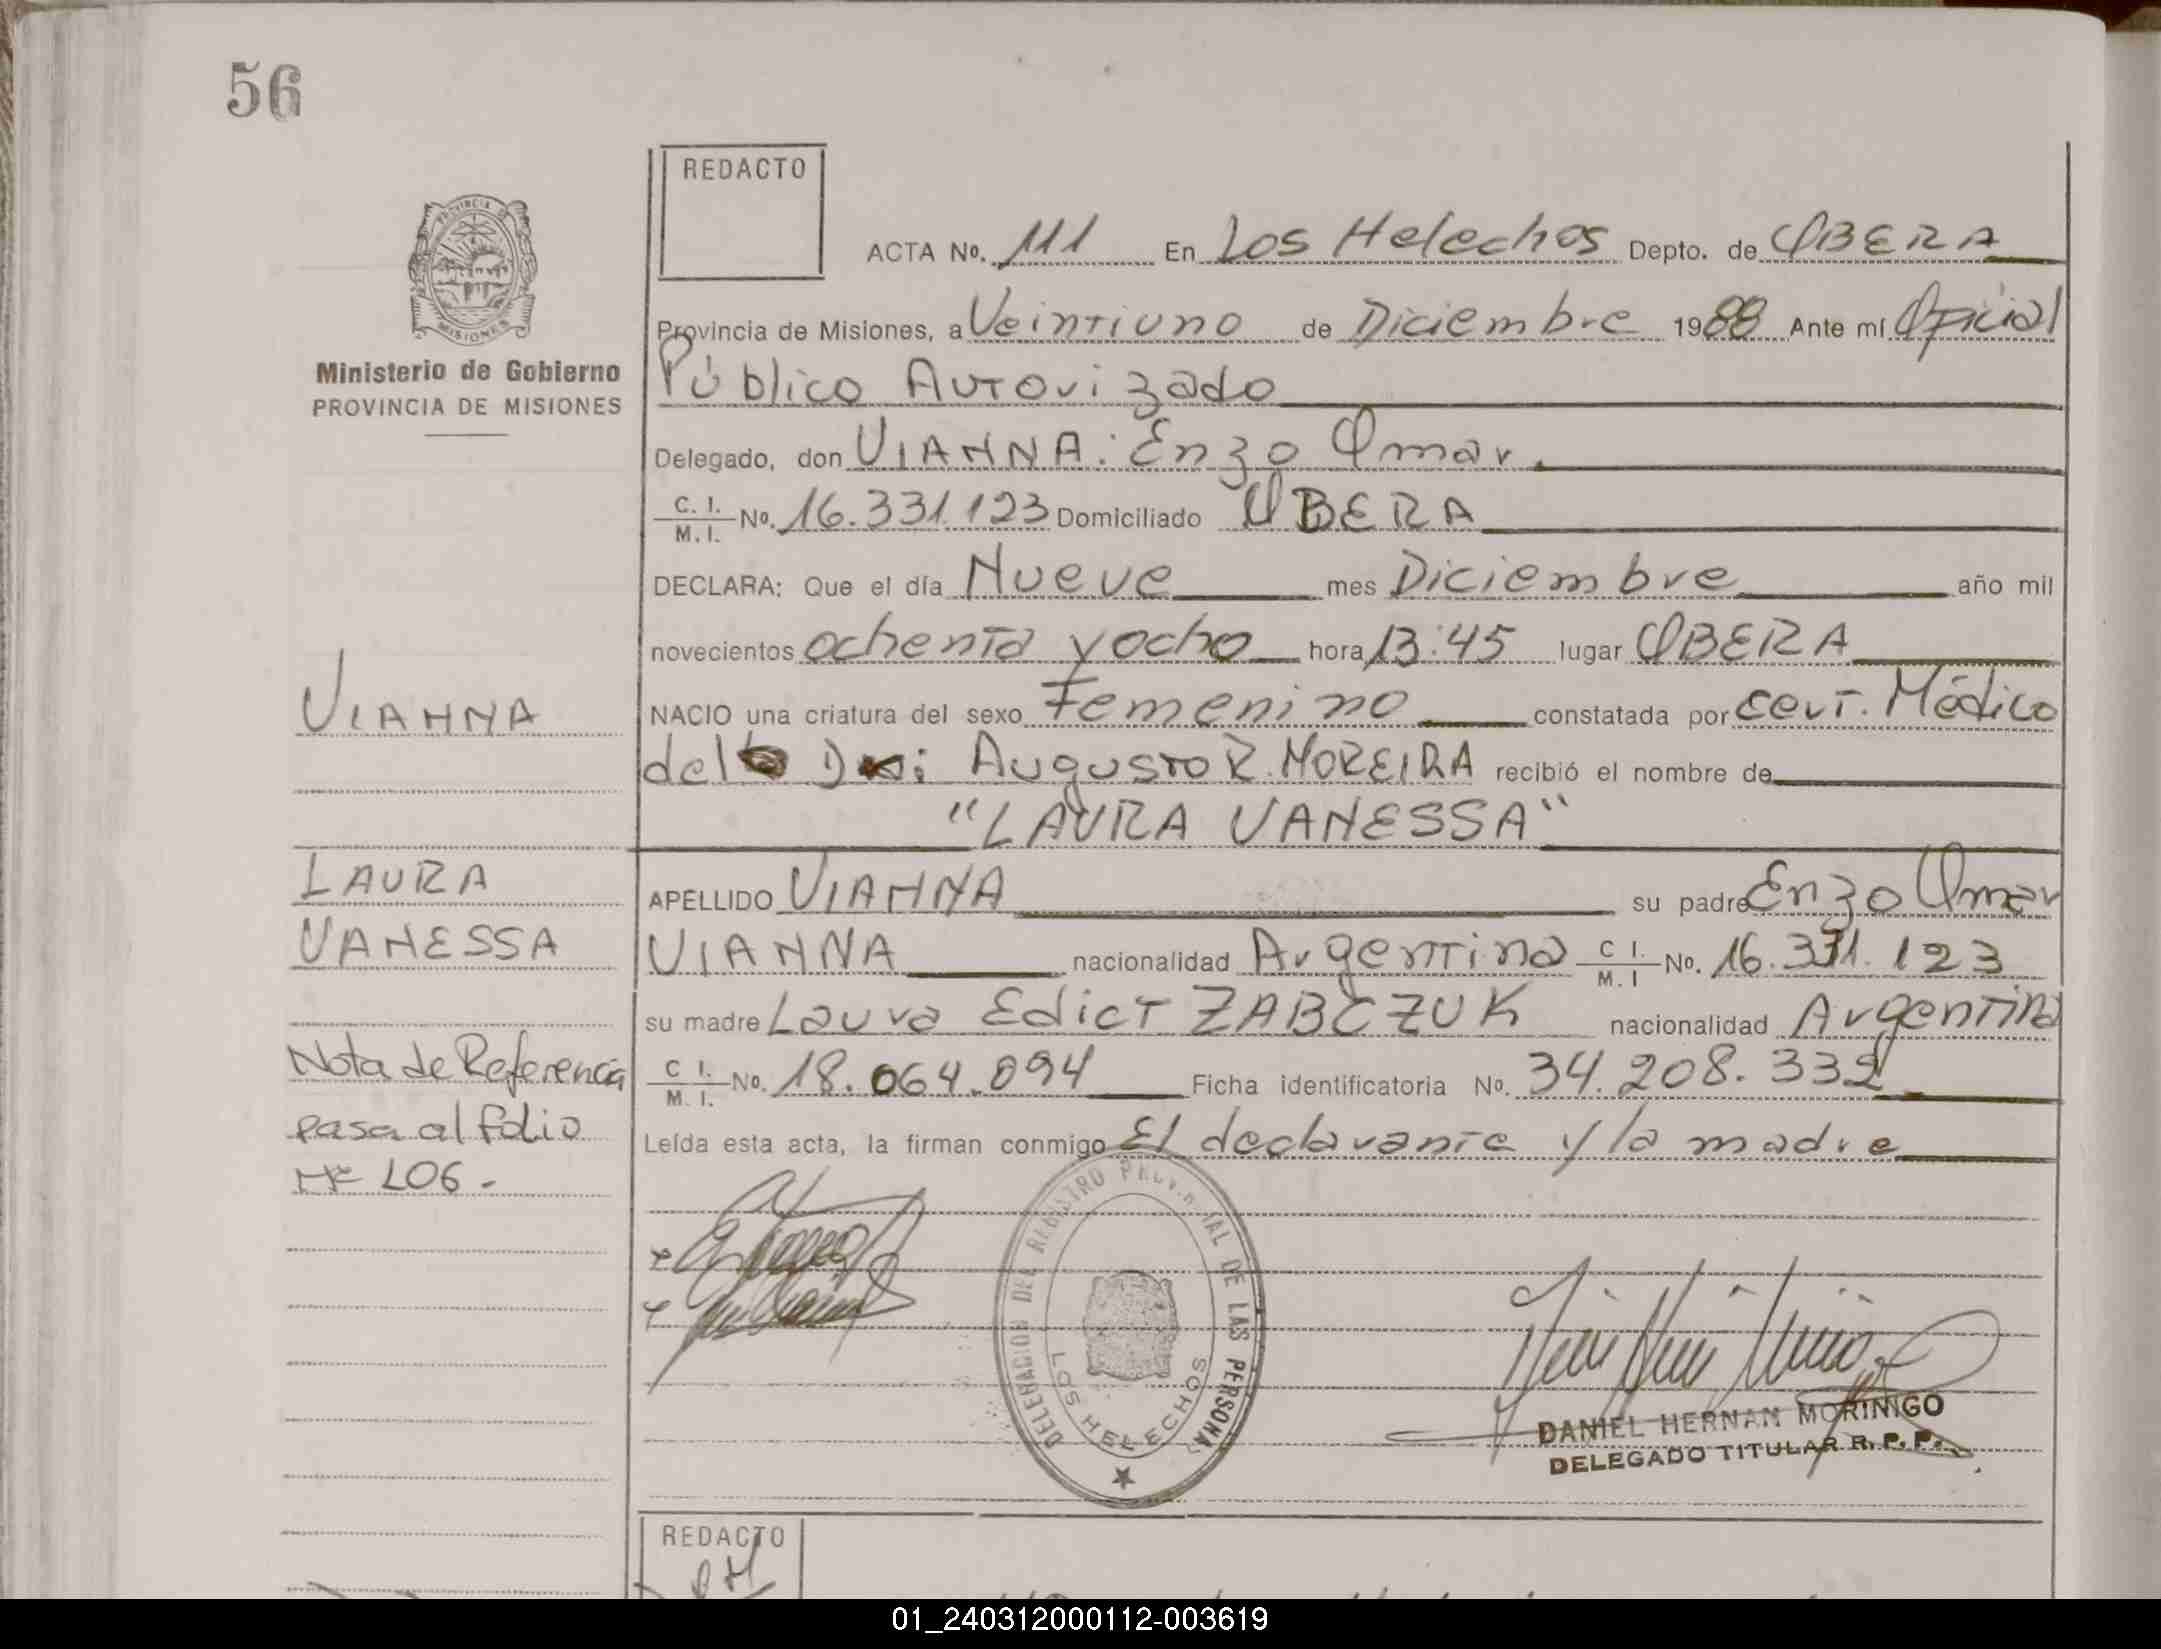 56
REDACTO
ACTA No. 111 En Los Helechos Depto. de OBERA
Provincia de Misiones, a Veintiuno de Diciembre 1988 Ante mí Oficial
Público Autorizado
Delegado, don VIANNA: Enzo Omar.
C. I. / M. I. No. 16.331.123 Domiciliado OBERA
DECLARA: Que el día Nueve mes Diciembre año mil
novecientos ochenta y ocho hora 13:45 lugar OBERA
NACIO una criatura del sexo Femenino constatada por cert. Médico
del Dr: Augusto R. MOREIRA recibió el nombre de
"LAURA VANESSA"
APELLIDO VIANNA su padre Enzo Omar
VIANNA nacionalidad Argentina C I. / M. I No. 16.331.123
su madre Laura Edict ZABCZUK nacionalidad Argentina
C I. / M. I. No. 18.064.094 Ficha identificatoria No. 34.208.332
Leída esta acta, la firman conmigo El declarante y la madre
PROVINCIA DE
MISIONES
Ministerio de Gobierno
PROVINCIA DE MISIONES
VIANNA
LAURA
VANESSA
Nota de Referencia
pasa al folio
Nº 106.-
DELEGACION DEL REGISTRO PROVINCIAL DE LAS PERSONAS
LOS HELECHOS
DANIEL HERNAN MORINIGO
DELEGADO TITULAR R. P. P.
REDACTO
01_240312000112-003619